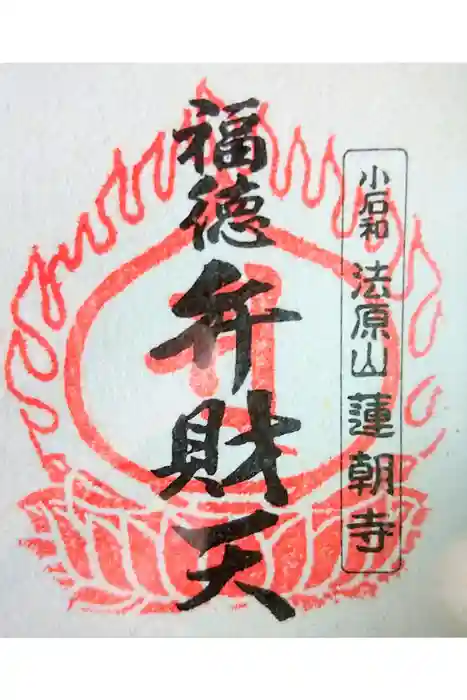 小石和 法原山 蓮朝寺
福徳
弁財天